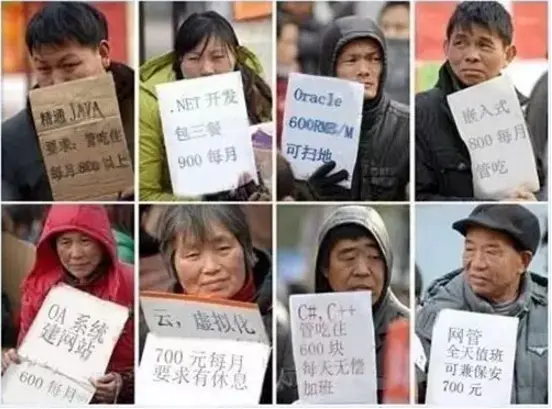 精通JAVA
要求：管吃住
每月800以上
.NET 开发
包三餐
900 每月
Oracle
600RMB/M
可扫地
嵌入式
800 每月
管吃
OA 系统
建网站
600 每月
云，虚拟化
700 元每月
要求有休息
C#, C++
管吃住
600 块
每天无偿
加班
网管
全天值班
可兼保安
700 元